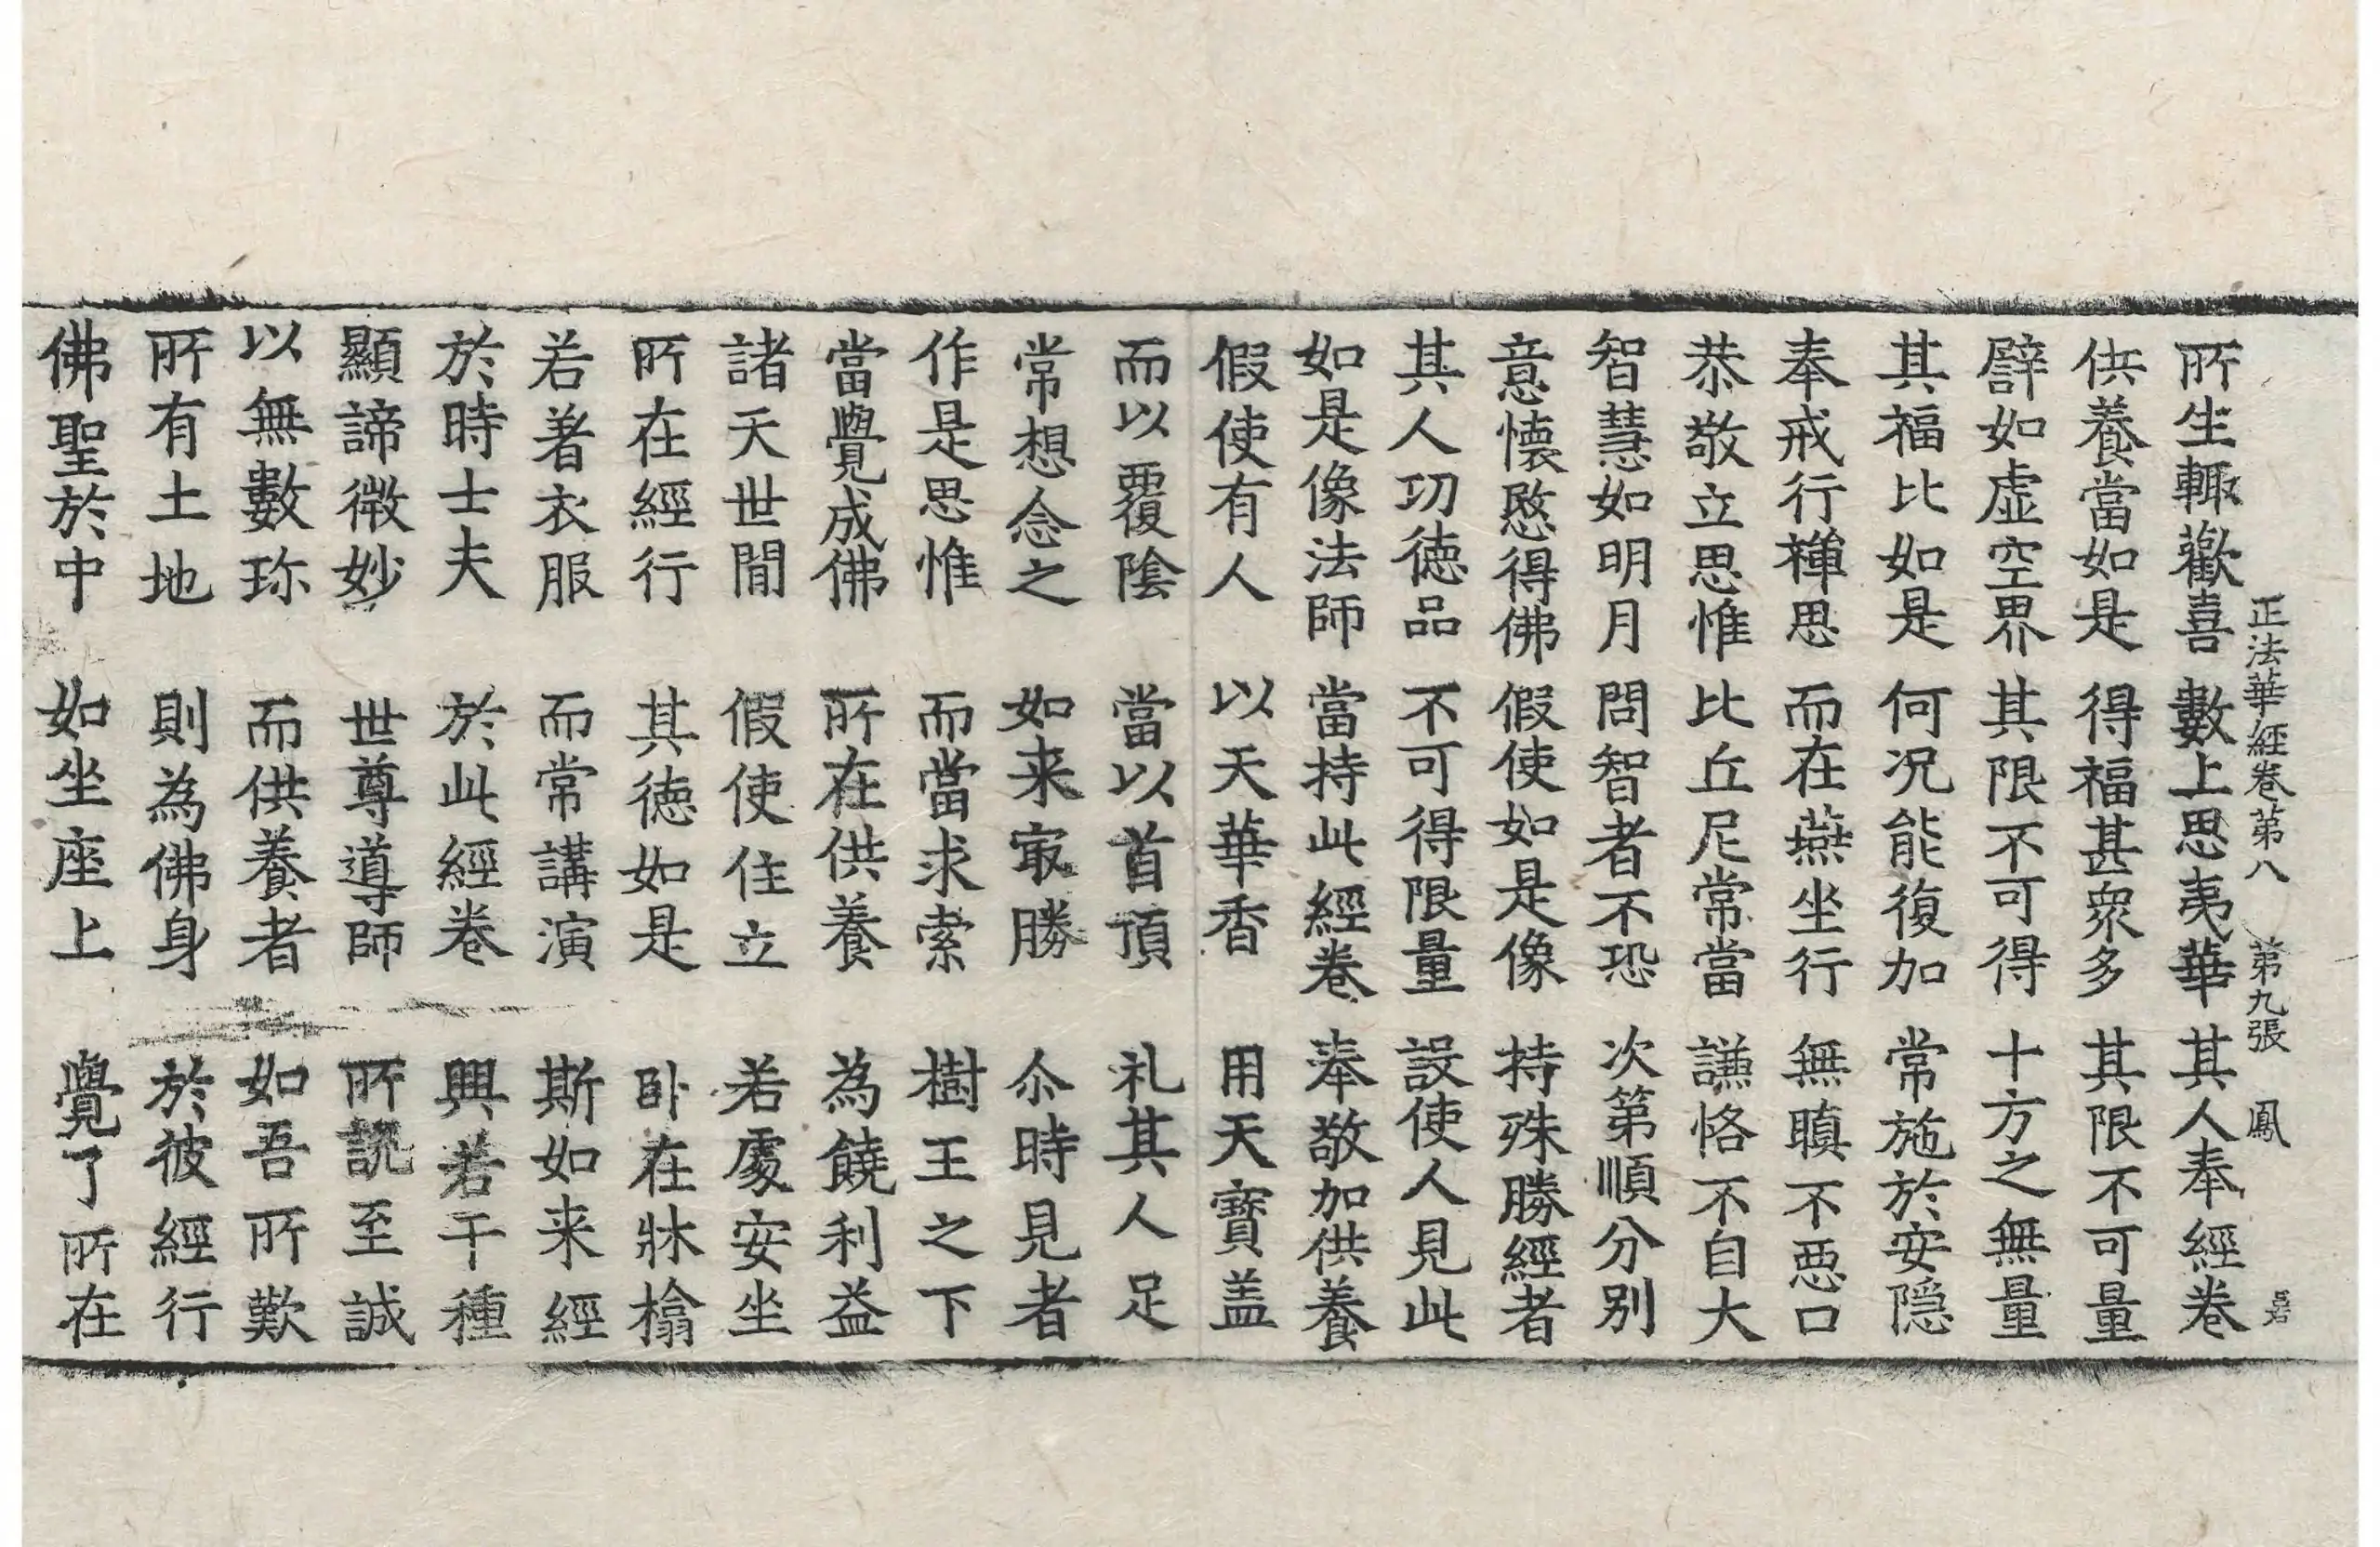 正法華經卷第八 第九張 鳳
所生輙歡喜 數上思夷華 其人奉經卷
供養當如是 得福甚眾多 其限不可量
譬如虛空界 其限不可得 十方之無量
其福比如是 何況能復加 常施於安隱
奉戒行禪思 而在燕坐行 無瞋不惡口
恭敬立思惟 比丘尼常當 謙恪不自大
智慧如明月 問智者不恐 次第順分別
意懷愍得佛 假使如是像 持殊勝經者
其人功德品 不可得限量 設使人見此
如是像法師 當持此經卷 奉敬加供養
假使有人 以天華香 用天寶盖
而以覆陰 當以首頂 礼其人足
常想念之 如来㝡勝 尒時見者
作是思惟 而當求索 樹王之下
當覺成佛 所在供養 為饒利益
諸天世間 假使住立 若處安坐
所在經行 其德如是 卧在牀榻
若著衣服 而常講演 斯如来經
於時士夫 於此經卷 興若干種
顯諦微妙 世尊導師 所說至誠
以無數珎 而供養者 如吾所歎
所有土地 則為佛身 於彼經行
佛聖於中 如坐座上 覺了所在